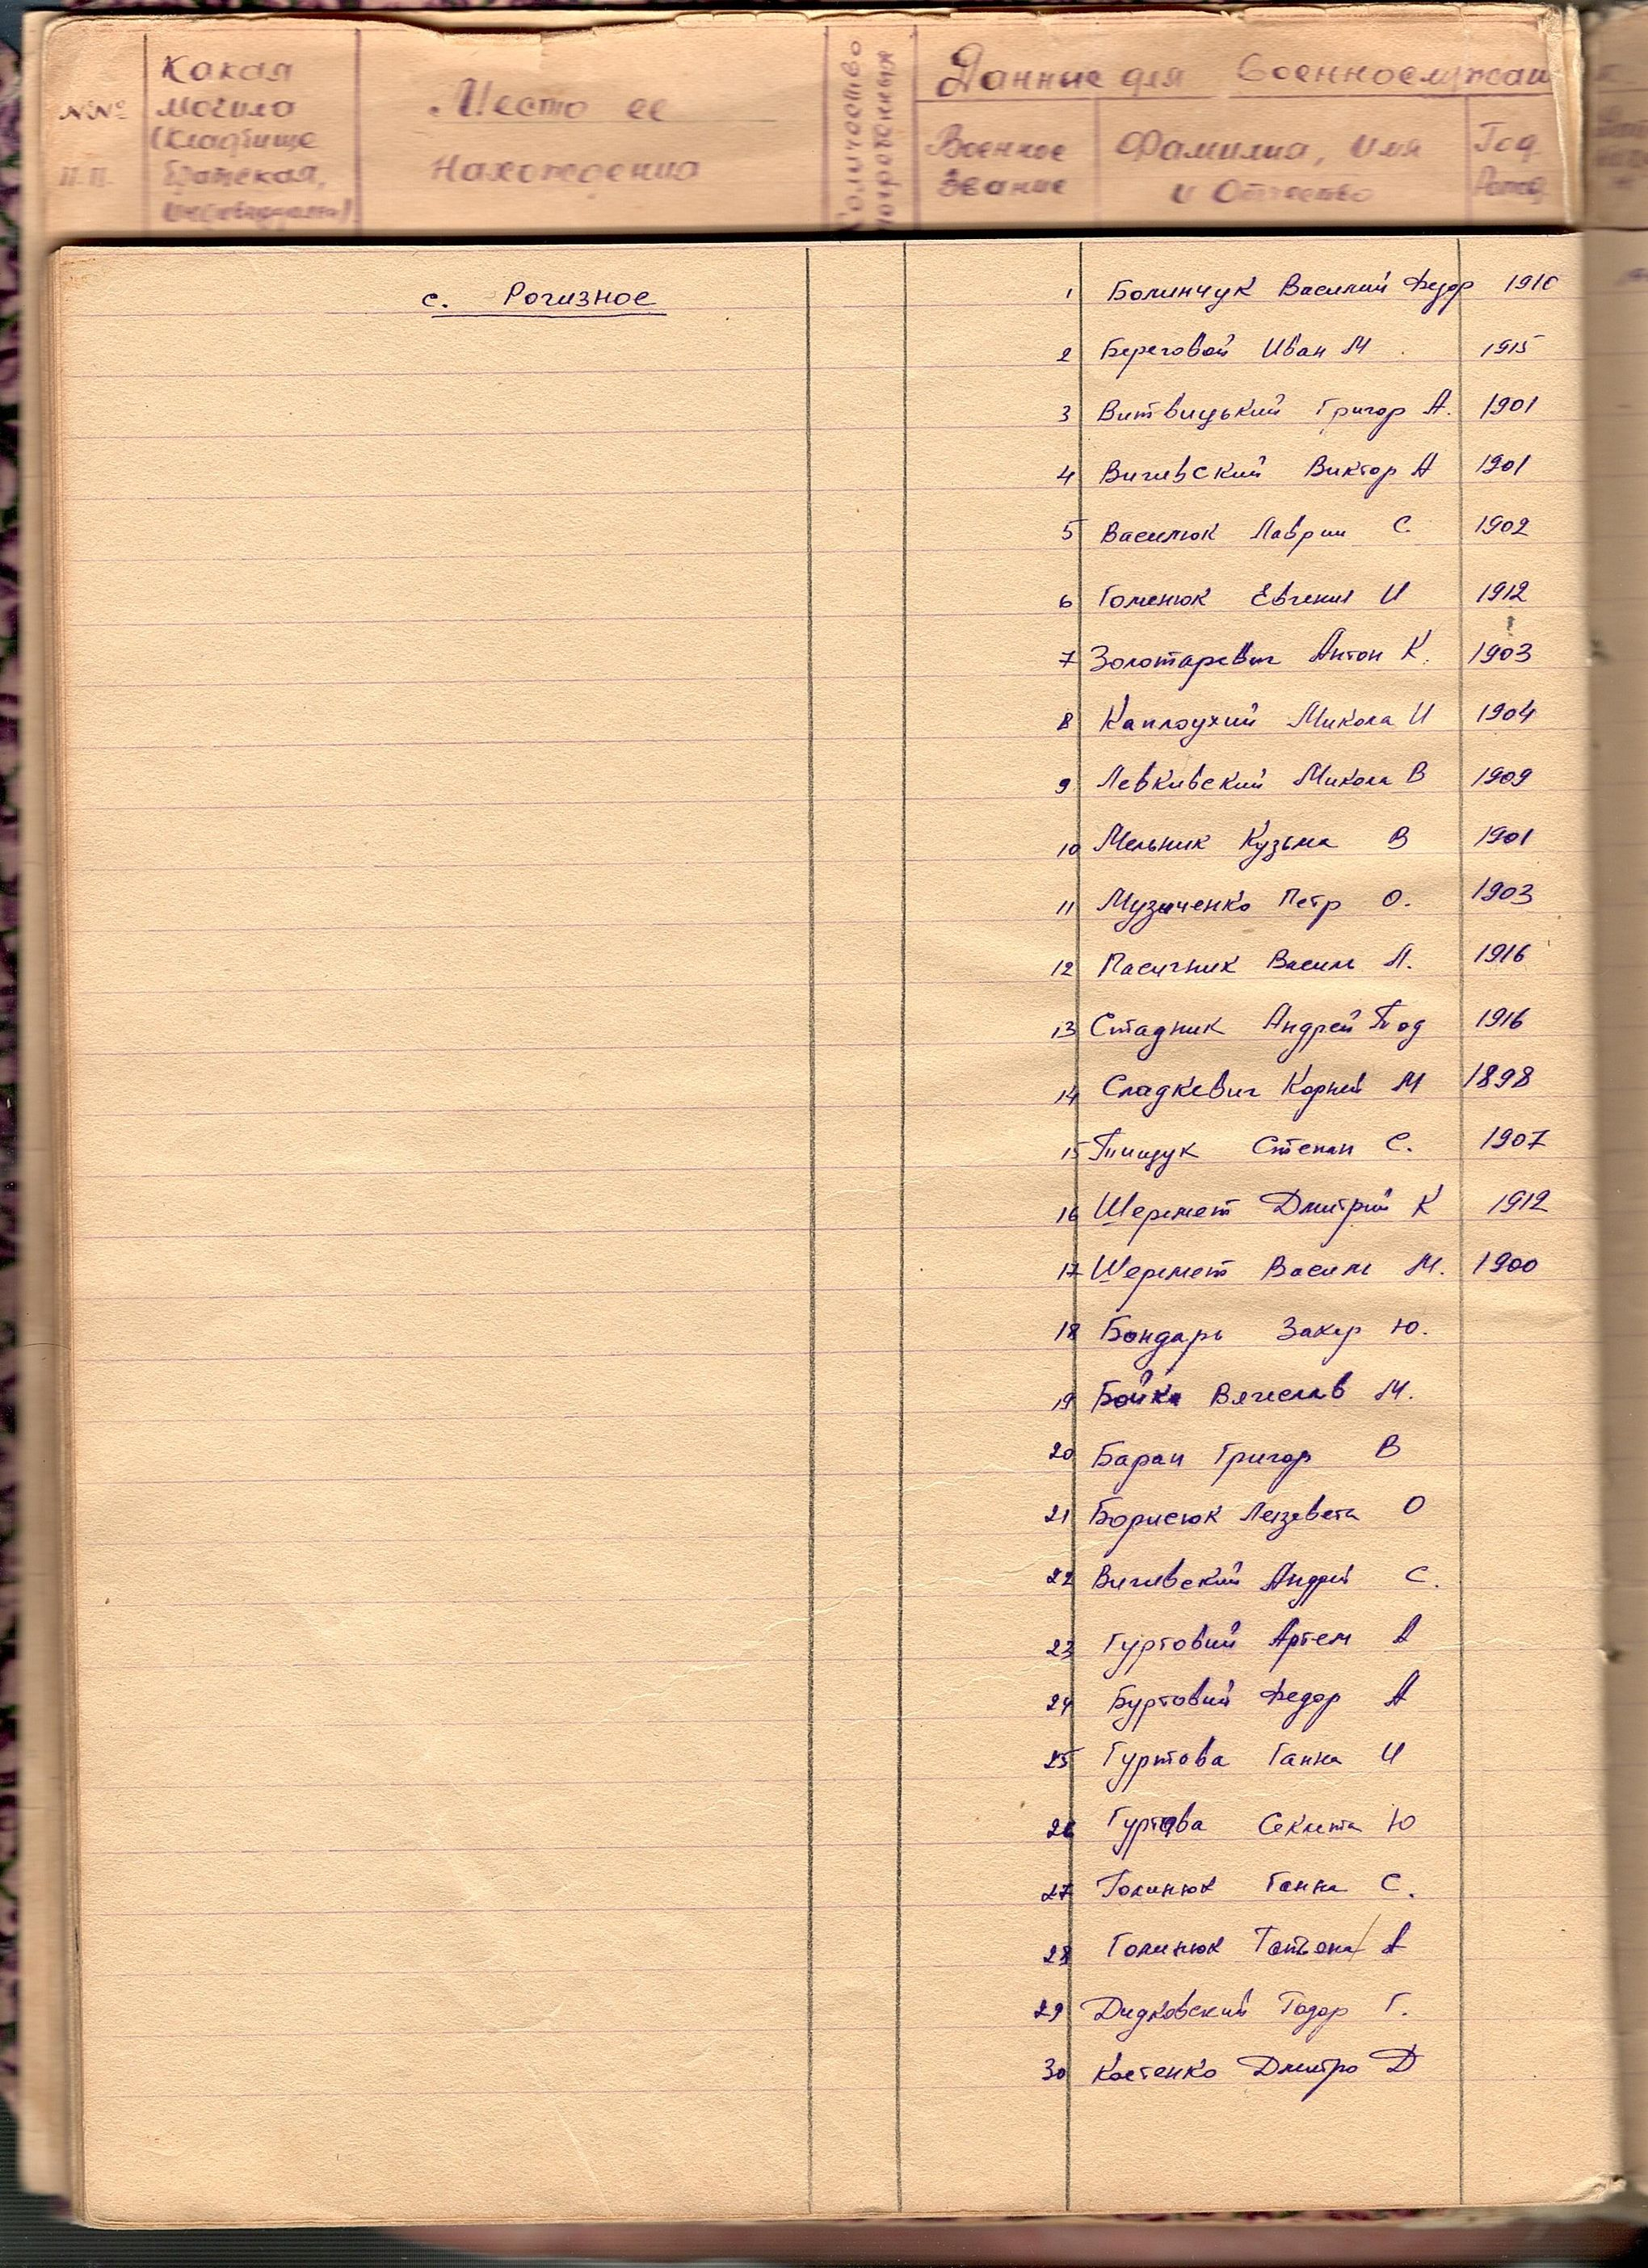 №№ п.п.
Какая могила (кладбище братская,
Место ее нахождения
Количество похороненных
Данные для военнослужащ
Военное звание
Фамилия, имя и отчество
Год рожд.
с. Рогизное
1 Болинчук Василий Федор 1910
2 Береговой Иван М. 1915
3 Витвицький Григор А. 1901
4 Вигивский Виктор А 1901
5 Василюк Лаврин С. 1902
6 Гоменюк Евгений И 1912
7 Золотаревич Антон К. 1903
8 Каплоухий Микола И 1904
9 Левкивский Микола В 1909
10 Мельник Кузьма В 1901
11 Музиченко Петр О. 1903
12 Пасичник Василь Л. 1916
13 Стадник Андрей Тод 1916
14 Сладкевич Корней М 1898
15 Тищук Степан С. 1907
16 Шеремет Дмитрий К 1912
17 Шеремет Василь М. 1900
18 Бондарь Захар Ю.
19 Бойко Вячеслав М.
20 Баран Григор В
21 Борисюк Лезевета О
22 Вигивский Андрей С.
23 Гуртовий Артем А
24 Буртовий Федор А
25 Гуртова Ганна И
26 Гуртова Секлета Ю
27 Голинюк Ганна С.
28 Голинюк Татьяна А
29 Дидковский Тодор Г.
30 Костенко Дмитро Д